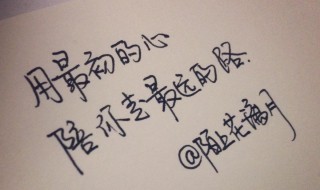 用最初的心
陪你走最远的路.
@陌上